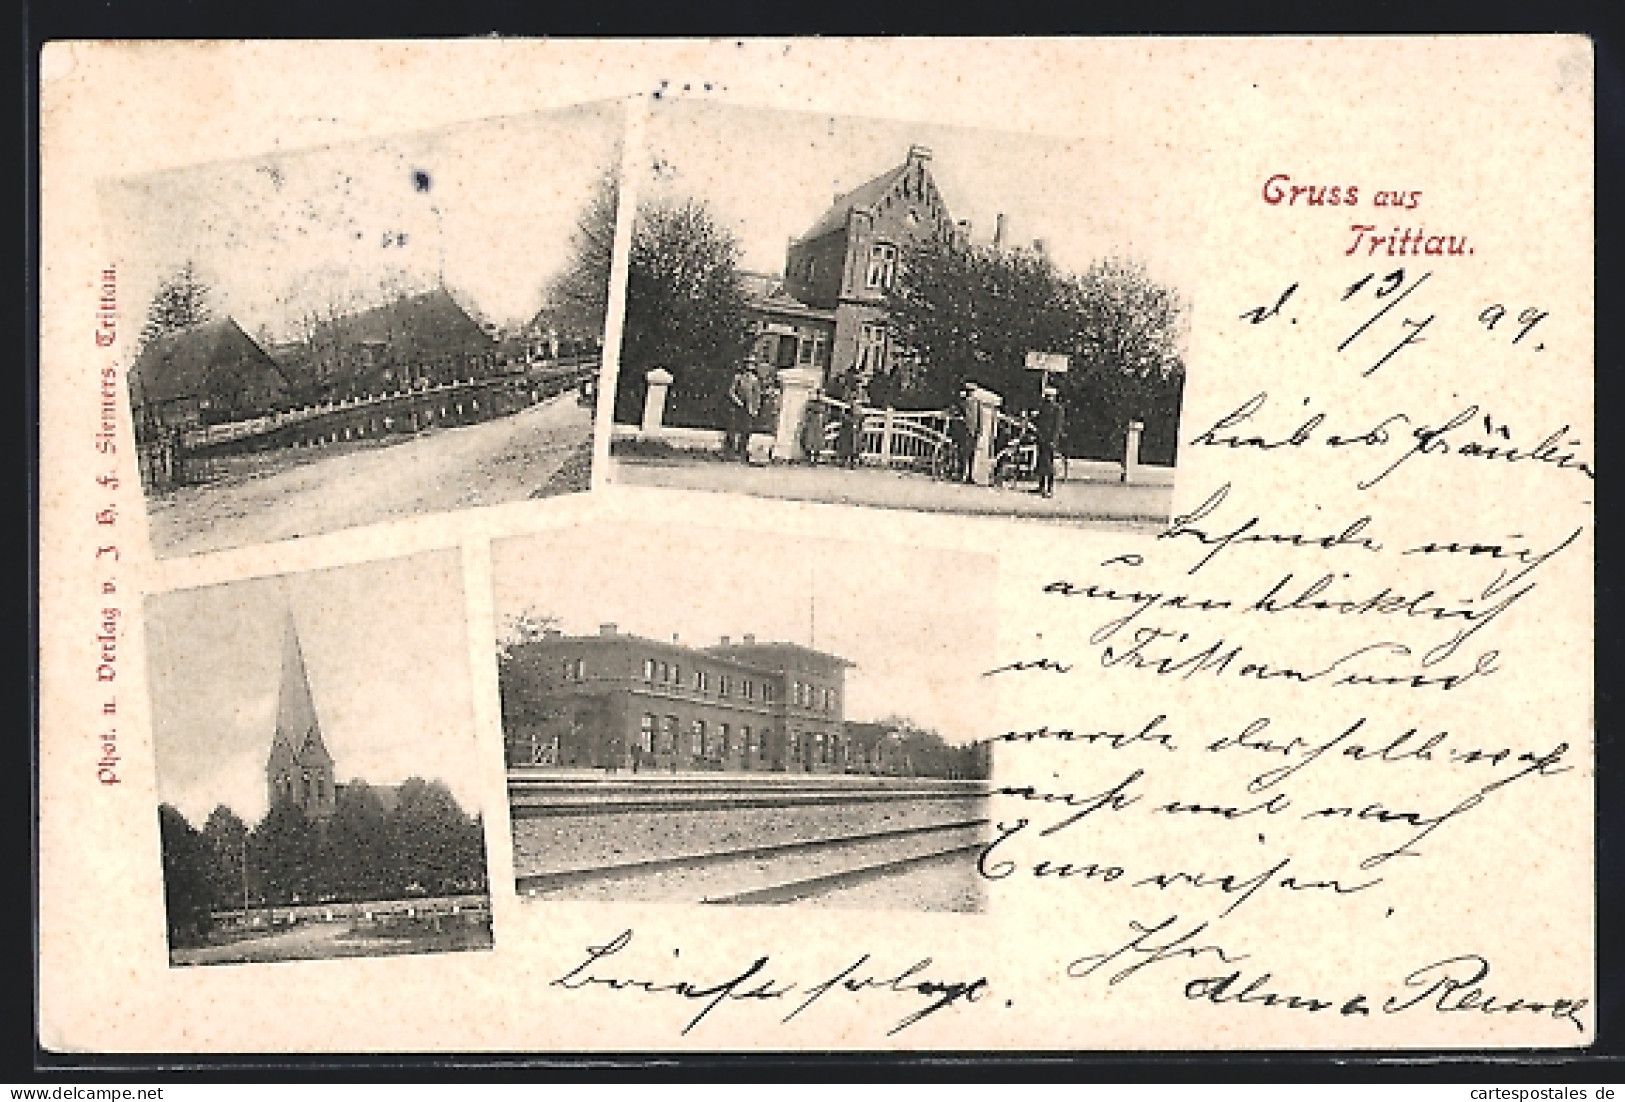 Gruss aus
Trittau.
d. 13/7 99.
Liebes Fräulein
Befinde mich
augenblicklich
in Trittau und
werde deshalb
nicht mit nach
reisen.
Ihre
Alma
Briefe folgt.
Phot. u. Verlag v. J. H. F. Siemers, Trittau.
© cartespostales.de
cartespostales de